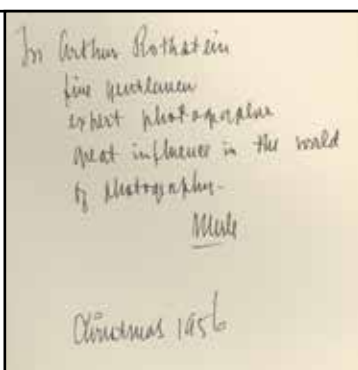 To Arthur Rothstein
fine gentleman
expert photographer
great influence in the world
of photography.
Merle
Christmas 1956